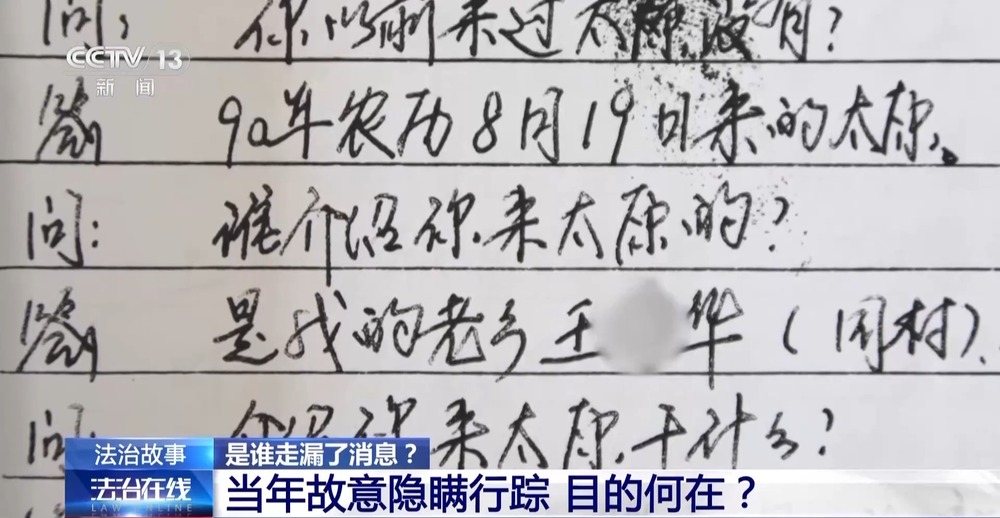 问: 你以前来过太原没有?
CCTV 13
新闻
答 90年农历8月19日来的太原。
问: 谁介绍你来太原的?
答 是我的老乡王 华(同村)。
问 介绍你来太原干什么?
法治故事 是谁走漏了消息?
法治在线 当年故意隐瞒行踪 目的何在?
LAW ONLINE